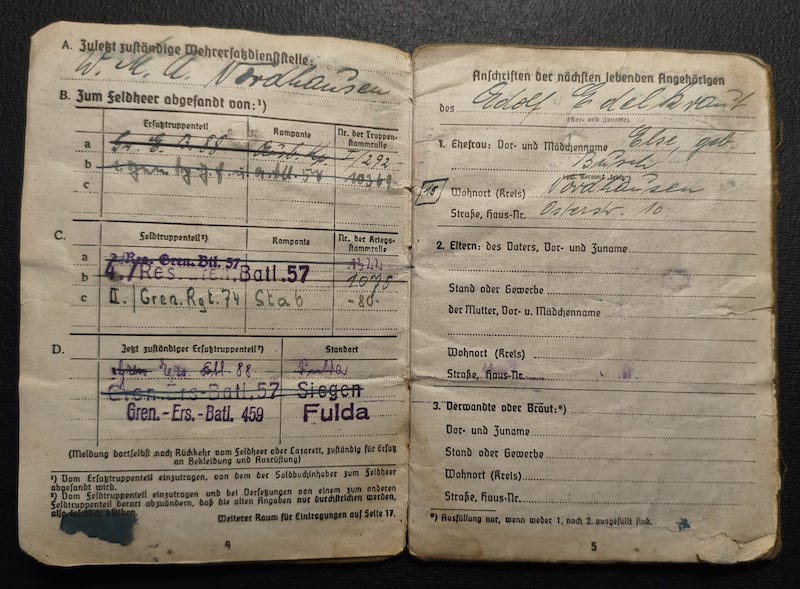 A. Zuletzt zuständige Wehrersatzdienststelle:
W. M. A. Nordhausen
B. Zum Feldheer abgesandt von:¹)
Ersatztruppenteil Kompanie Nr. der Truppen-
stammrolle
a 88 I/292
b 10369
c
C. Feldtruppenteil²) Kompanie Nr. der Kriegs-
stammrolle
a 2./Res. Gren. Btl. 57 1322
b 4./Res. Batl. 57 1075
c II./Gren. Rgt. 74 Stab -80-
D. Jetzt zuständiger Ersatztruppenteil²) Standort
88 Fulda
Gren-Ers-Batl. 57 Siegen
Gren.-Ers-Batl. 459 Fulda
(Meldung dortselbst nach Rückkehr vom Feldheer oder Lazarett, zuständig für Ersatz
an Bekleidung und Ausrüstung)
¹) Vom Ersatztruppenteil einzutragen, von dem der Soldbuchinhaber zum Feldheer
abgesandt wird.
²) Vom Feldtruppenteil einzutragen und bei Versetzungen von einem zum anderen
Feldtruppenteil derart abzuändern, daß die alten Angaben nur durchstrichen werden,
also leserlich bleiben.
Weiterer Raum für Eintragungen auf Seite 17.
4
Anschriften der nächsten lebenden Angehörigen
des Adolf Edelkraut
(Vor- und Zuname)
1. Ehefrau: Vor- und Mädchenname Else, geb.
Busch
15 Wohnort (Kreis) Nordhausen
Straße, Haus-Nr. Osterstr. 10
2. Eltern: des Vaters, Vor- und Zuname
Stand oder Gewerbe
der Mutter, Vor- u. Mädchenname
Wohnort (Kreis)
Straße, Haus-Nr.
3. Verwandte oder Braut:*)
Vor- und Zuname
Stand oder Gewerbe
Wohnort (Kreis)
Straße, Haus-Nr.
*) Ausfüllung nur, wenn weder 1. noch 2. ausgefüllt sind.
5